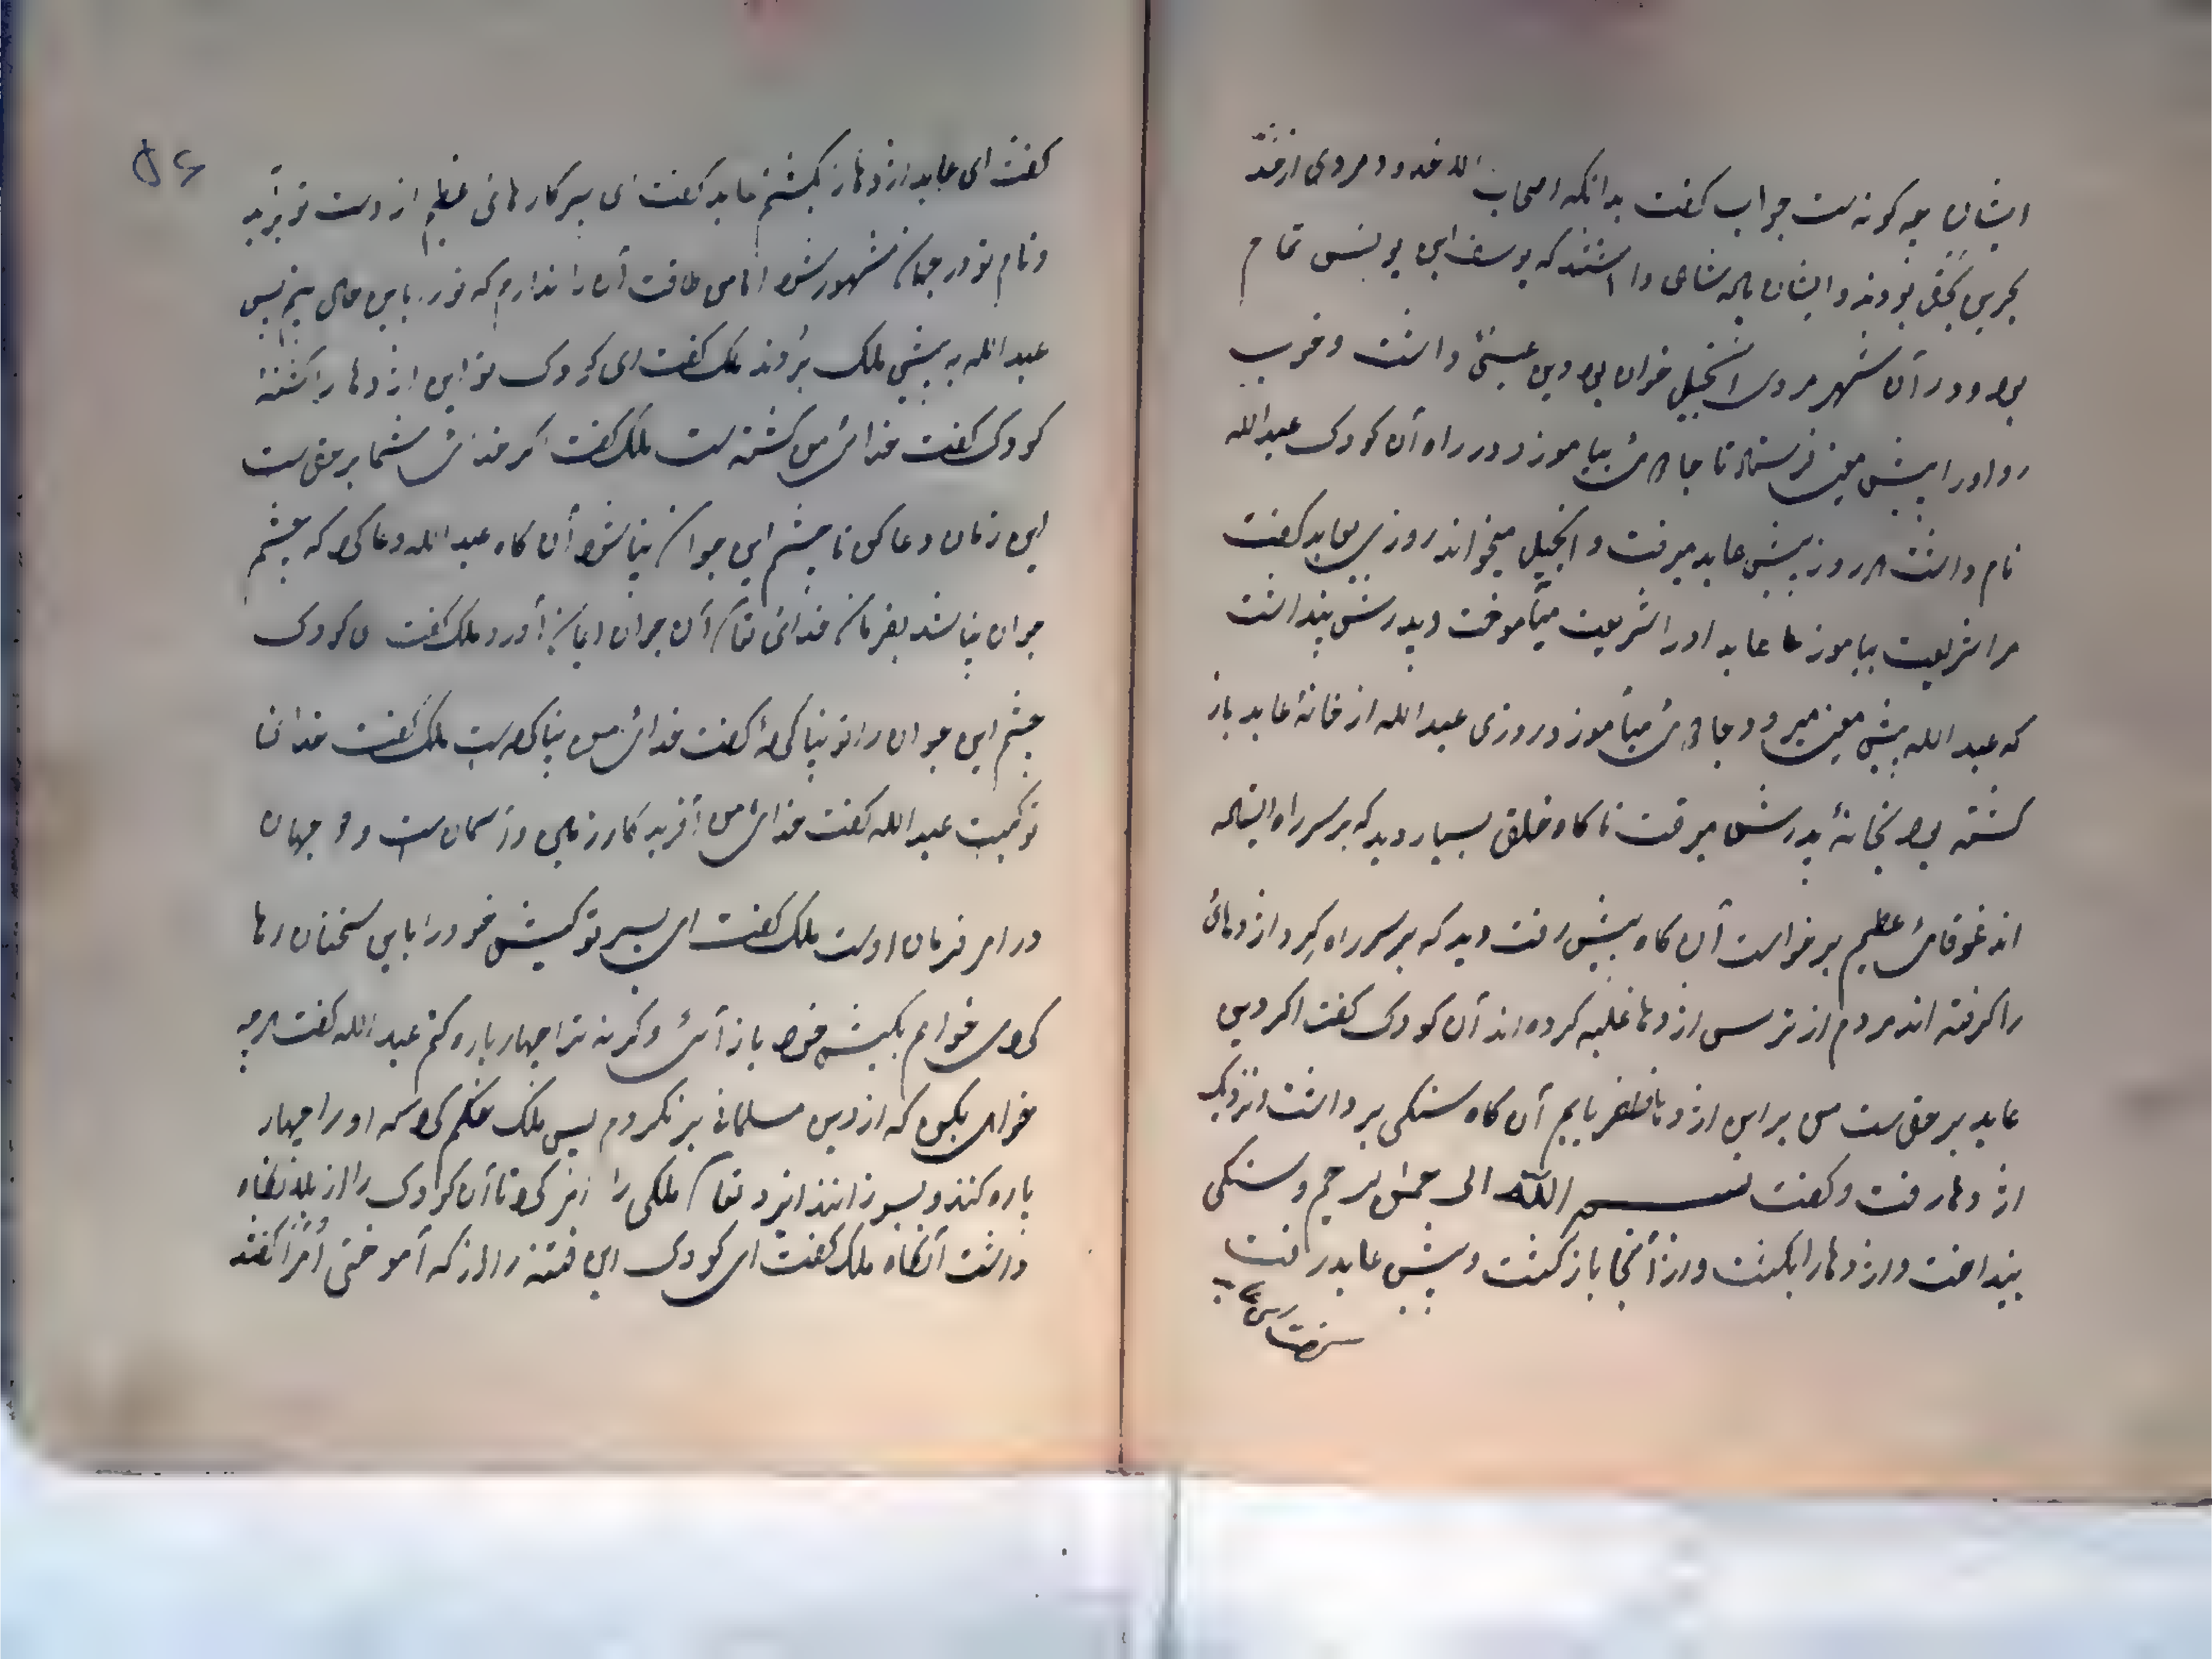 ایشان چه کونه ست جواب کفت بدانکه اصحاب الاخدود مردی از
بودند و ایشان پادشاهی داشتند که یوسف ابن یونس نام
بود و در آن شهر مردی انجیل خوان بود دین عیسی داشت و خوب
رو اورا پیش معین فرستاد تا جادوئی بیاموزد و در راه آن کودک عبدالله
نام داشت هر روز پیش عابد میرفت و انجیل میخواند روزی بعابد کفت
مرا شریعت بیاموز عابد اورا شریعت میآموخت و پدرش پنداشت
که عبدالله پیش معین میرود و جادوئی میآموزد روزی عبدالله از خانۀ عابد باز
کشته بود بخانۀ پدرش میرفت ناکاه خلق بسیار دید که بر سر راه ایستاده
اند غوغای عظیم برخواست آن کاه پیش رفت دید که بر سر راه کرد اژدهائی
را کرفته اند مردم از ترس اژدها غلبه کرده اند آن کودک کفت اکر دین
عابد بر حق ست من بر این اژدها ظفر یابم آن کاه سنکی برداشت و نزدیک
اژدها رفت و کفت بسم الله الرحمن الرحیم و سنکی
بینداخت و اژدها را بکشت و از آنجا باز کشت و پیش عابد رفت
۵۶
کفت ای عابد اژدها را بکشتم عابد کفت ای پسر کارهائی عظیم از دست تو برآید
و نام تو در جهان مشهور شود اما من طاقت آن را ندارم که تو را باین حال بینم پس
عبدالله به پیش ملک بردند ملک کفت ای کودک تو این اژدها را کشتۀ
کودک کفت خدای من کشته ست ملک کفت اکر خدای شما بر حق ست
این زمان دعا کن تا چشم این جوان بینا شود آن کاه عبدالله دعا کرد که چشم
جوان بینا شد بفرمان خدای تعالی آن جوان ایمان آورد ملک کفت ای کودک
چشم این جوان را تو بینا کردۀ کفت خدای من بینا کرده ست ملک کفت خدای
تو کیست عبدالله کفت خدای من آفریدکار زمین و آسمان ست و دو جهان
در امر فرمان اوست ملک کفت ای پسر تو کیش خود را باین سخنان رها
کردی خواهم بکیش خود باز آئی و کرنه ترا چهار پاره کنم عبدالله کفت هرچه
خواهی بکن که از دین مسلمانی بر نکردم پس ملک حکم کرد که اورا چهار
پاره کنند و بسوزانند ایزد تعالی ملکی را امر کرد تا آن کودک را از بلا نکاه
داشت آنکاه ملک کفت ای کودک این فتنه را از که آموختی